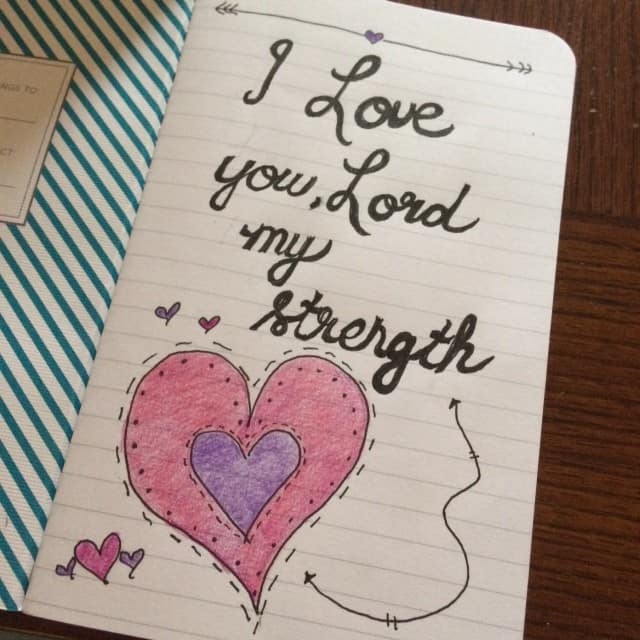 NGS TO
CT
I Love
you, Lord
my
strength